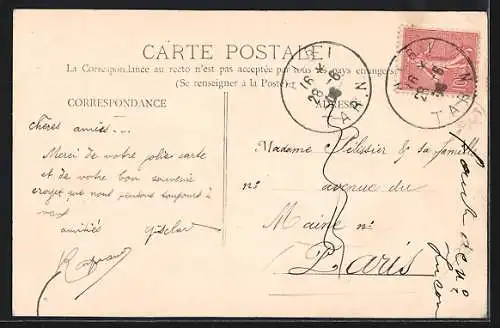 CARTE POSTALE
La Correspondance au recto n'est pas acceptée par tous les pays étrangers
(Se renseigner à la Poste)
CORRESPONDANCE
ADRESSE
Chères amies...
Merci de votre jolie carte
et de votre bon souvenir
croyez que nous pensons toujours à
vous
amitiés
Madame Pélissier & sa famille
n°
avenue du
Maine n°
Paris
16 *
28 -8
TARN
16 *
28 -8
TARN